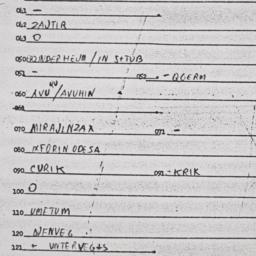 041 –
042 ZAJTIR
043 O
050 BINDERHEJM / IN STUB
051 – 052 – QGERM
060 AVU / AVUHIN
061
070 MIRAJINZAX 071 –
080 IXFORIN ODESA
090 CVRIK 091 – KRIK
100 O
110 UMETUM
120 NENVEG
121 + UNTERVEGS